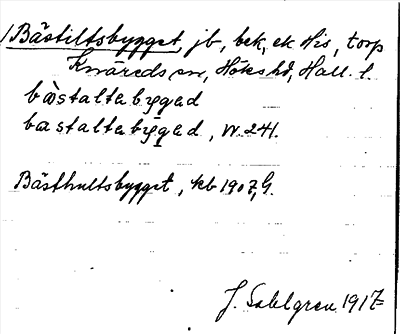 1 Bästiltsbygget, jb, bek, ek His, torp
Knäreds sn, Höks hd, Hall. l.
bàstaltabyged
bastaltabyged, W. 241.
Bästhultsbygget, kb 1907, G.
J. Sahlgren 1917